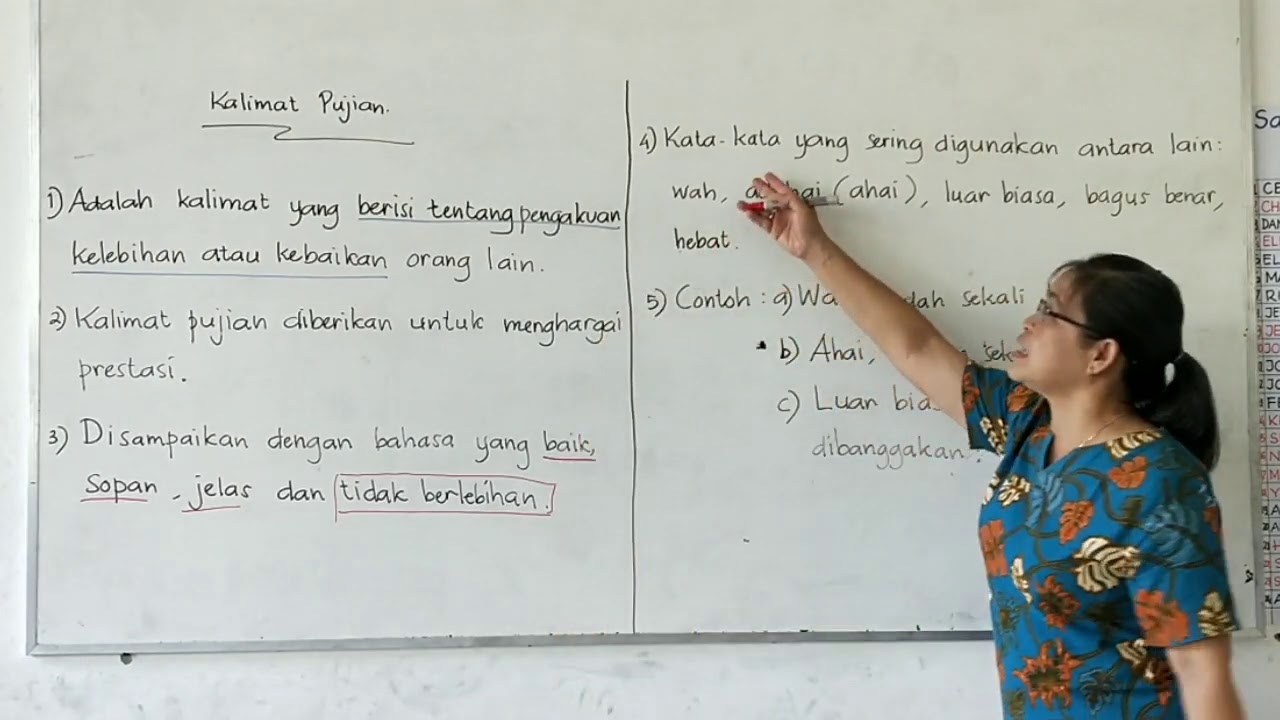 Kalimat Pujian.
1) Adalah kalimat yang berisi tentang pengakuan
kelebihan atau kebaikan orang lain.
2) Kalimat pujian diberikan untuk menghargai
prestasi.
3) Disampaikan dengan bahasa yang baik,
sopan, jelas dan tidak berlebihan.
4) Kata-kata yang sering digunakan antara lain:
wah, (ahai), luar biasa, bagus benar,
hebat.
5) Contoh : a) sekali
b) Ahai,
c) Luar
dibanggakan